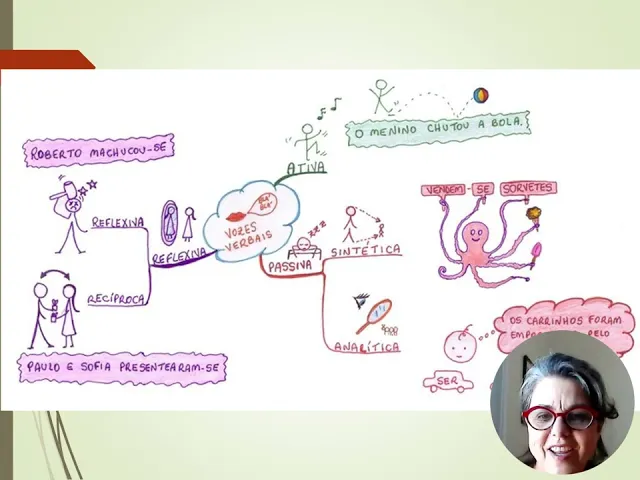 O MENINO CHUTOU A BOLA.
ROBERTO MACHUCOU-SE
ATIVA
VENDEM-SE SORVETES
BLÁ BLÁ
VOZES
VERBAIS
REFLEXIVA
REFLEXIVA
PASSIVA
SINTÉTICA
RECÍPROCA
ANALÍTICA
OS CARRINHOS FORAM
PELO
PAULO E SOFIA PRESENTEARAM-SE
SER